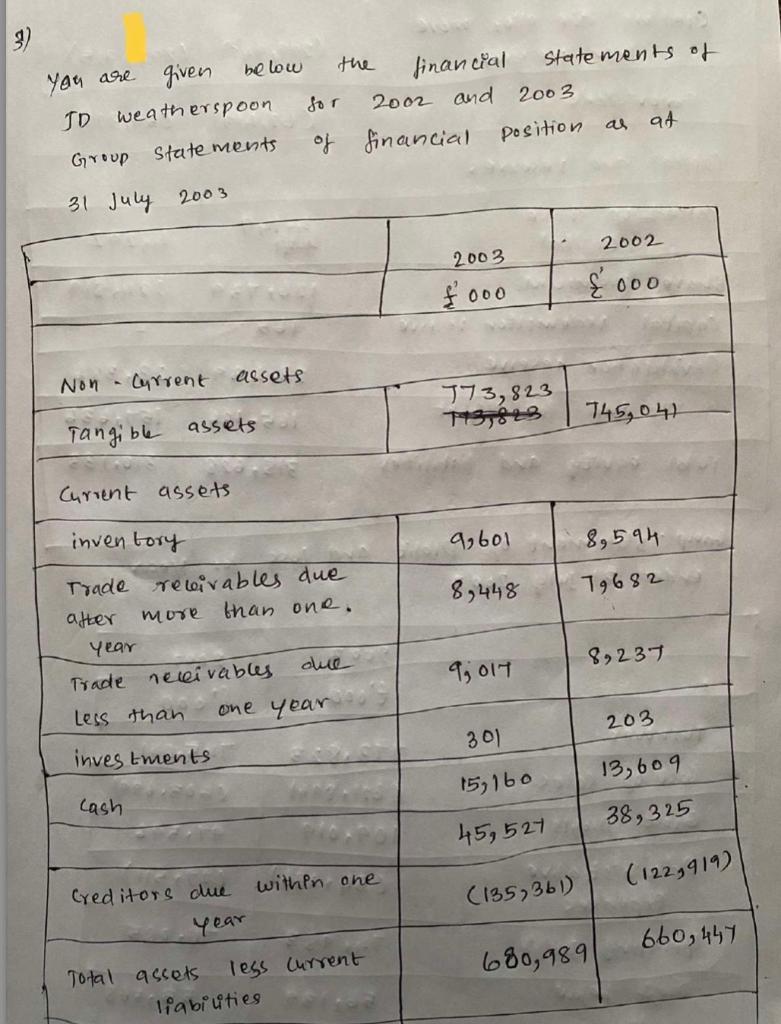 3)
You are given below the financial statements of
JD weatherspoon for 2002 and 2003
Group statements of financial position as at
31 July 2003
2003 2002
£'000 £'000
Non - Current assets
773,823
Tangible assets 773,823 745,041
Current assets
inventory 9,601 8,594
Trade receivables due 8,448 7,682
after more than one.
year
Trade receivables due 9,017 8,237
Less than one year
investments 301 203
Cash 15,160 13,609
45,527 38,325
Creditors due within one (135,361) (122,919)
year
Total assets less current 680,989 660,447
liabilities